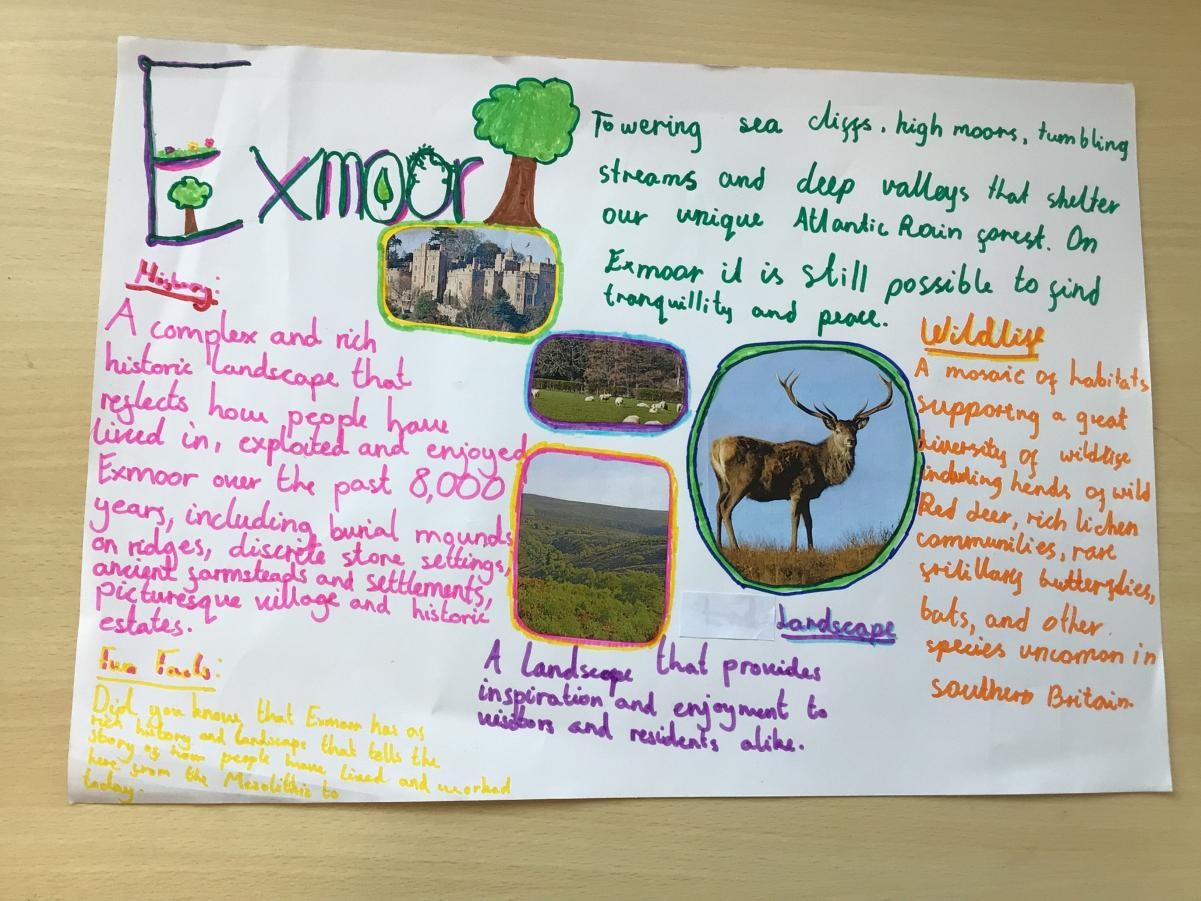 Exmoor
Towering sea cliffs, high moors, tumbling
streams and deep valleys that shelter
our unique Atlantic Rain forest. On
Exmoor it is still possible to find
tranquillity and peace.
History:
A complex and rich
historic landscape that
reflects how people have
lived in, exploited and enjoyed
Exmoor over the past 8,000
years, including burial mounds
on ridges, discrete stone settings,
ancient farmsteads and settlements,
picturesque village and historic
estates.
Fun Facts:
Did you know, that Exmoor has as
rich history and landscape that tells the
story of how people have lived and worked
here from the Mesolithic to
today.
Landscape
A landscape that provides
inspiration and enjoyment to
visitors and residents alike.
Wildlife
A mosaic of habitats
supporting a great
diversity of wildlife
including herds of wild
Red deer, rich lichen
communities, rare
fritillary butterflies,
bats, and other
species uncommon in
southern Britain.